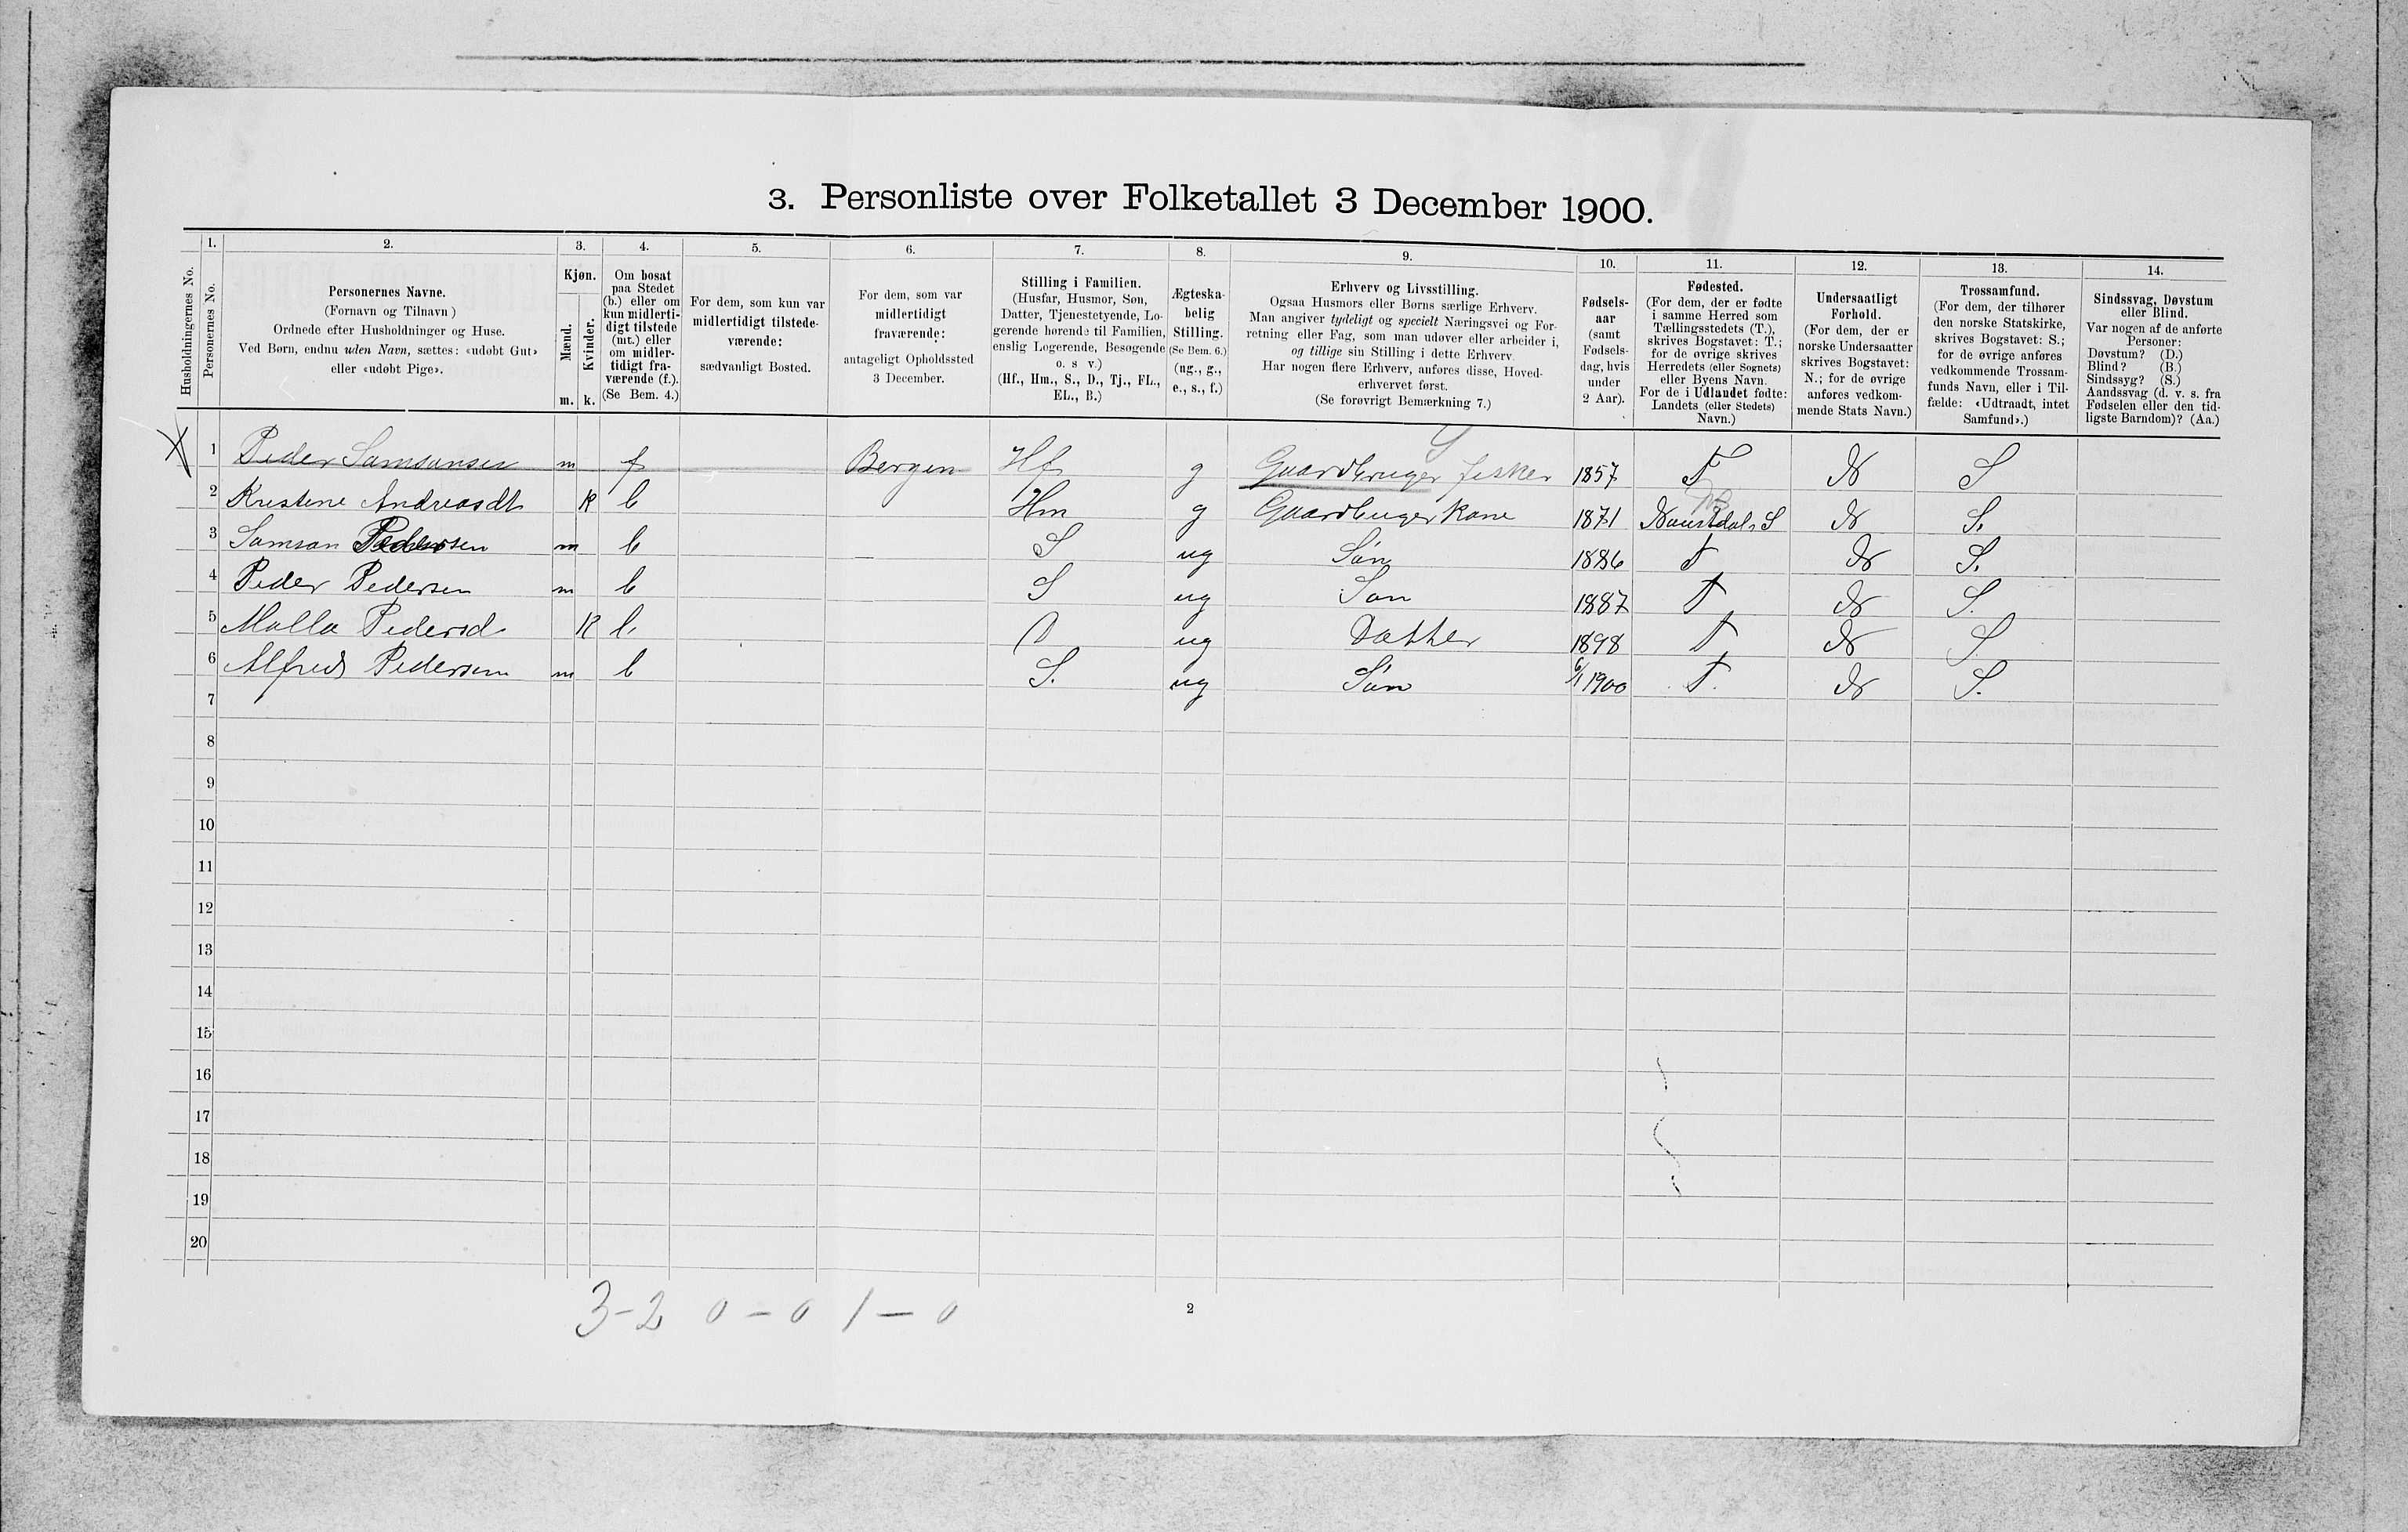 3. Personliste over Folketallet 3 December 1900.
1. 2. 3. 4. 5. 6. 7. 8. 9. 10. 11. 12. 13. 14.
Husholdningernes No.
Personernes No.
Personernes Navne.
(Fornavn og Tilnavn)
Ordnede efter Husholdninger og Huse.
Ved Børn, endnu uden Navn, sættes: «udøbt Gut»
eller «udøbt Pige».
Kjøn.
Mænd.
Kvinder.
m. k.
Om bosat
paa Stedet
(b.) eller om
kun midlerti-
digt tilstede
(mt.) eller
om midler-
tidigt fra-
værende (f.).
(Se Bem. 4.)
For dem, som kun var
midlertidigt tilstede-
værende:
sædvanligt Bosted.
For dem, som var
midlertidigt
fraværende:
antageligt Opholdssted
3 December.
Stilling i Familien.
(Husfar, Husmor, Søn,
Datter, Tjenestetyende, Lo-
gerende hørende til Familien,
enslig Logerende, Besøgende
o. s v.)
(Hf., Hm., S., D., Tj., FL.,
EL., B.)
Ægteska-
belig
Stilling.
(Se Bem. 6.)
(ug., g.,
e., s., f.)
Erhverv og Livsstilling.
Ogsaa Husmors eller Børns særlige Erhverv.
Man angiver tydeligt og specielt Næringsvei og For-
retning eller Fag, som man udøver eller arbeider i,
og tillige sin Stilling i dette Erhverv.
Har nogen flere Erhverv, anføres disse, Hoved-
erhvervet først.
(Se forøvrigt Bemærkning 7.)
Fødsels-
aar
(samt
Fødsels-
dag, hvis
under
2 Aar).
Fødested.
(For dem, der er fødte
i samme Herred som
Tællingsstedets (T.),
skrives Bogstavet: T.;
for de øvrige skrives
Herredets (eller Sognets)
eller Byens Navn.
For de i Udlandet fødte:
Landets (eller Stedets)
Navn.)
Undersaatligt
Forhold.
(For dem, der er
norske Undersaatter
skrives Bogstavet:
N.; for de øvrige
anføres vedkom-
mende Stats Navn.)
Trossamfund.
(For dem, der tilhører
den norske Statskirke,
skrives Bogstavet: S.;
for de øvrige anføres
vedkommende Trossam-
funds Navn, eller i Til-
fælde: «Udtraadt, intet
Samfund».)
Sindssvag, Døvstum
eller Blind.
Var nogen af de anførte
Personer:
Døvstum? (D.)
Blind? (B.)
Sindssyg? (S.)
Aandssvag (d. v. s. fra
Fødselen eller den tid-
ligste Barndom)? (Aa.)
X 1 Peder Samsonsen m f Bergen Hf g Gaardbruger fisker 1857 T N S
2 Kristine Andreasdt k b Hm g Gaardbrugerkone 1871 Naustdal S N S.
3 Samson Pedersen m b S ug Søn 1886 T N S.
4 Peder Pedersen m b S ug Søn 1887 T N S.
5 Malla Pedersd k b. D ug Datter 1898 T N S
6 Alfred Pedersen m b S. ug Søn 6/1 1900 T. N S.
7
8
9
10
11
12
13
14
15
16
17
18
19
20
3-2 0-0 1-0
2